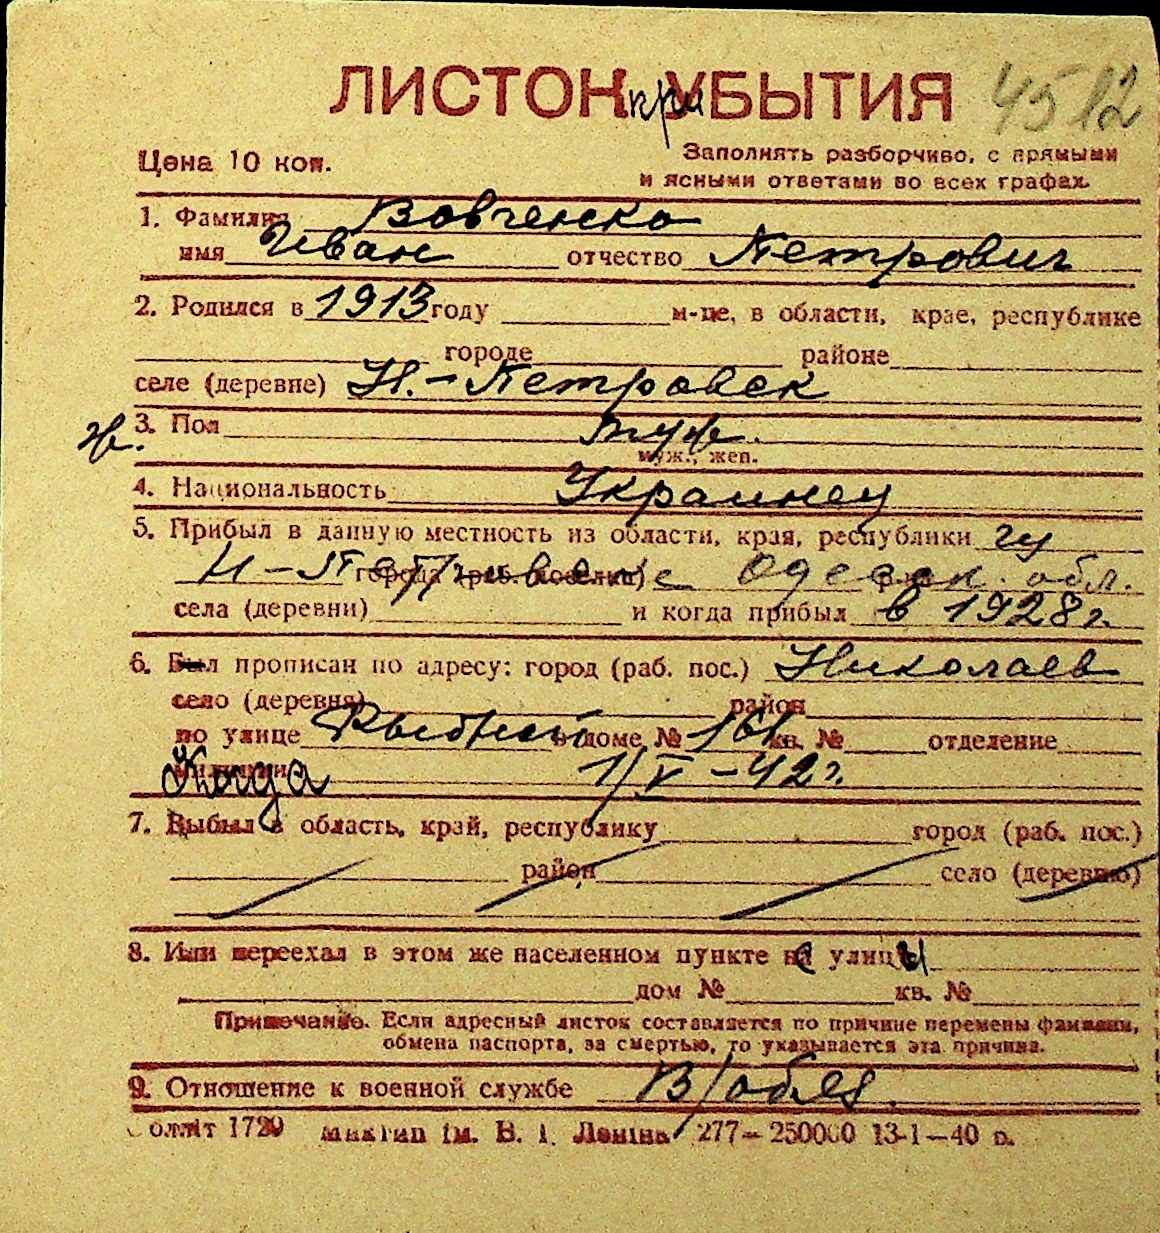 ЛИСТОК при УБЫТИЯ 4512
Цена 10 коп.
Заполнять разборчиво, с прямыми
и ясными ответами во всех графах.
1. Фамилия Вовченко
имя Иван отчество Петрович
2. Родился в 1913 году м-це, в области, крае, республике
городе районе
селе (деревне) Н.-Петровск
3. Пол муж.
муж., жен.
4. Национальность Украинец
5. Прибыл в данную местность из области, края, республики из
Н-Петровске Одесск. обл.
города (раб. поселка)
села (деревни) и когда прибыл в 1928 г.
6. Был прописан по адресу: город (раб. пос.) Николаев
село (деревня) район
по улице Рыбной в доме № 161 кв. № отделение
милиции Когда 1/V-42 г.
7. Выбыл в область, край, республику город (раб. пос.)
район село (деревню)
8. Или переехал в этом же населенном пункте с улицы
дом № кв. №
Примечание. Если адресный листок составляется по причине перемены фамилии,
обмена паспорта, за смертью, то указывается эта причина.
9. Отношение к военной службе В/обяз.
1729 ім. В. І. Леніна 277—250000 13-1—40 р.